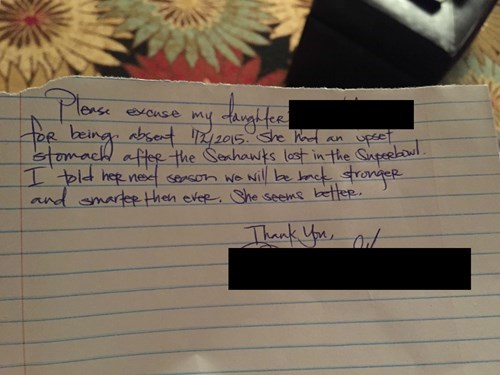 Please excuse my daughter
for being absent 1/2/2015. She had an upset
stomach after the Seahawks lost in the Superbowl.
I told her next season we will be back stronger
and smarter then ever. She seems better.
Thank You,